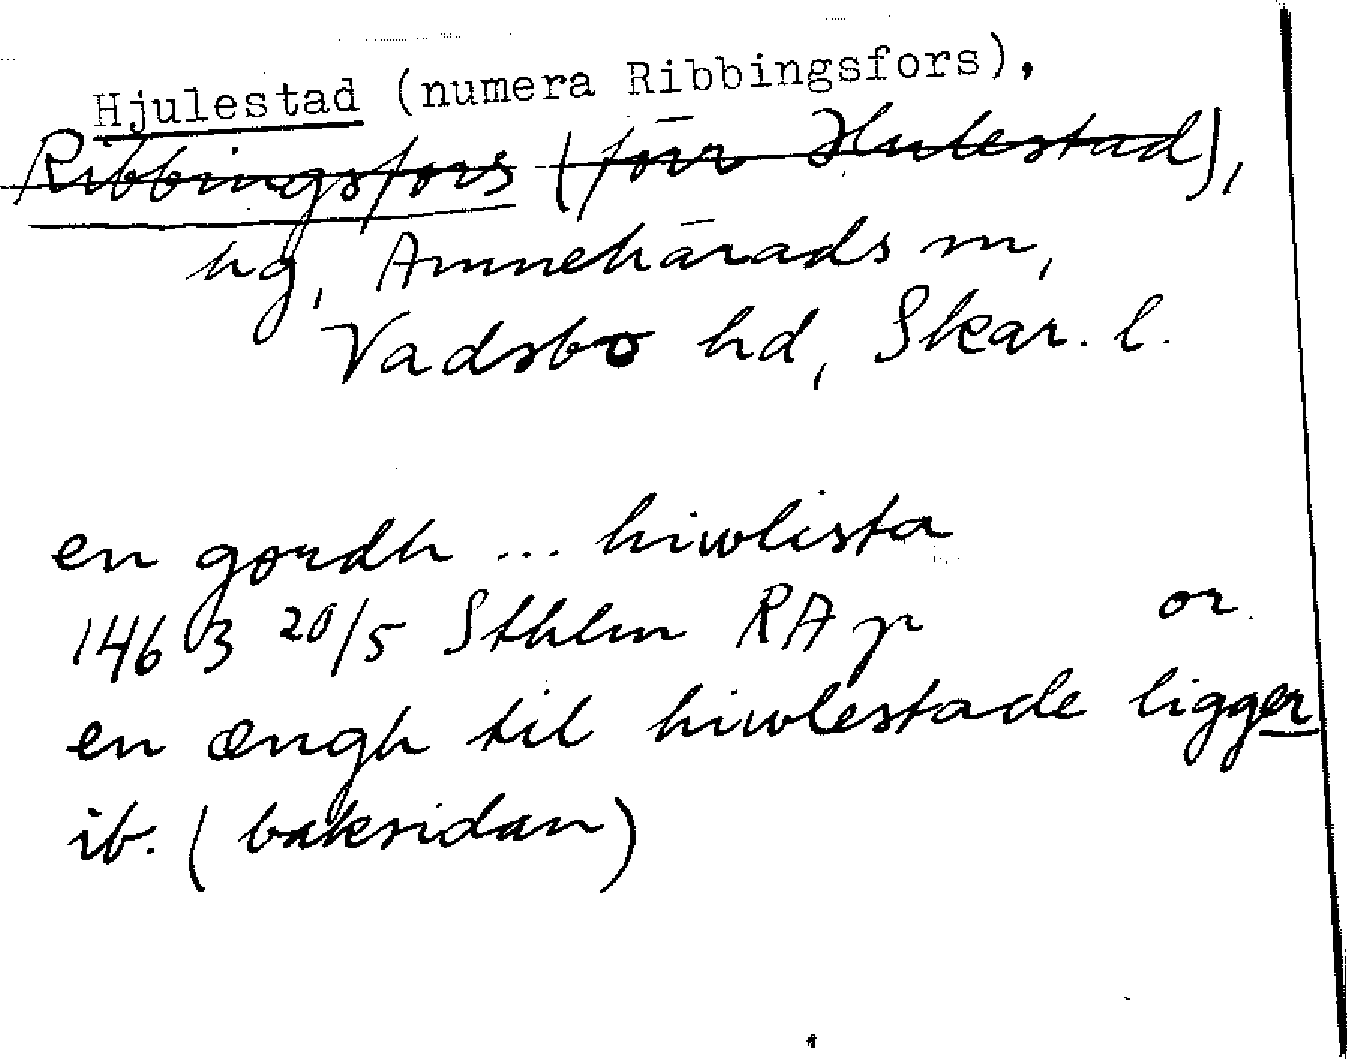 Hjulestad (numera Ribbingsfors),
Ribbingsfors (förr Hulestad),
hg, Amnehärads sn,
Vadsbo hd, Skar. l.
en gordh ... hiwlista
1463 20/5 Sthlm RAp or
en ængh til hiwlestade ligger
ib. (baksidan)